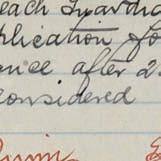 each Guardia
plication fo
ance after 2
considered